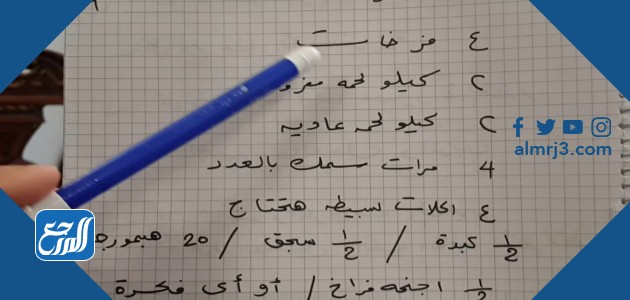 ٤ فرخات
٢ كيلو لحمه مفرو
٢ كيلو لحمه عاديه
4 مرات سمك بالعدد
٤ اكلات بسيطه هتحتاج
½ كبدة / ½ سجق / 20 همبورجر
½ اجنحه فراخ / أو أى فكرة
almrj3.com
المرجع